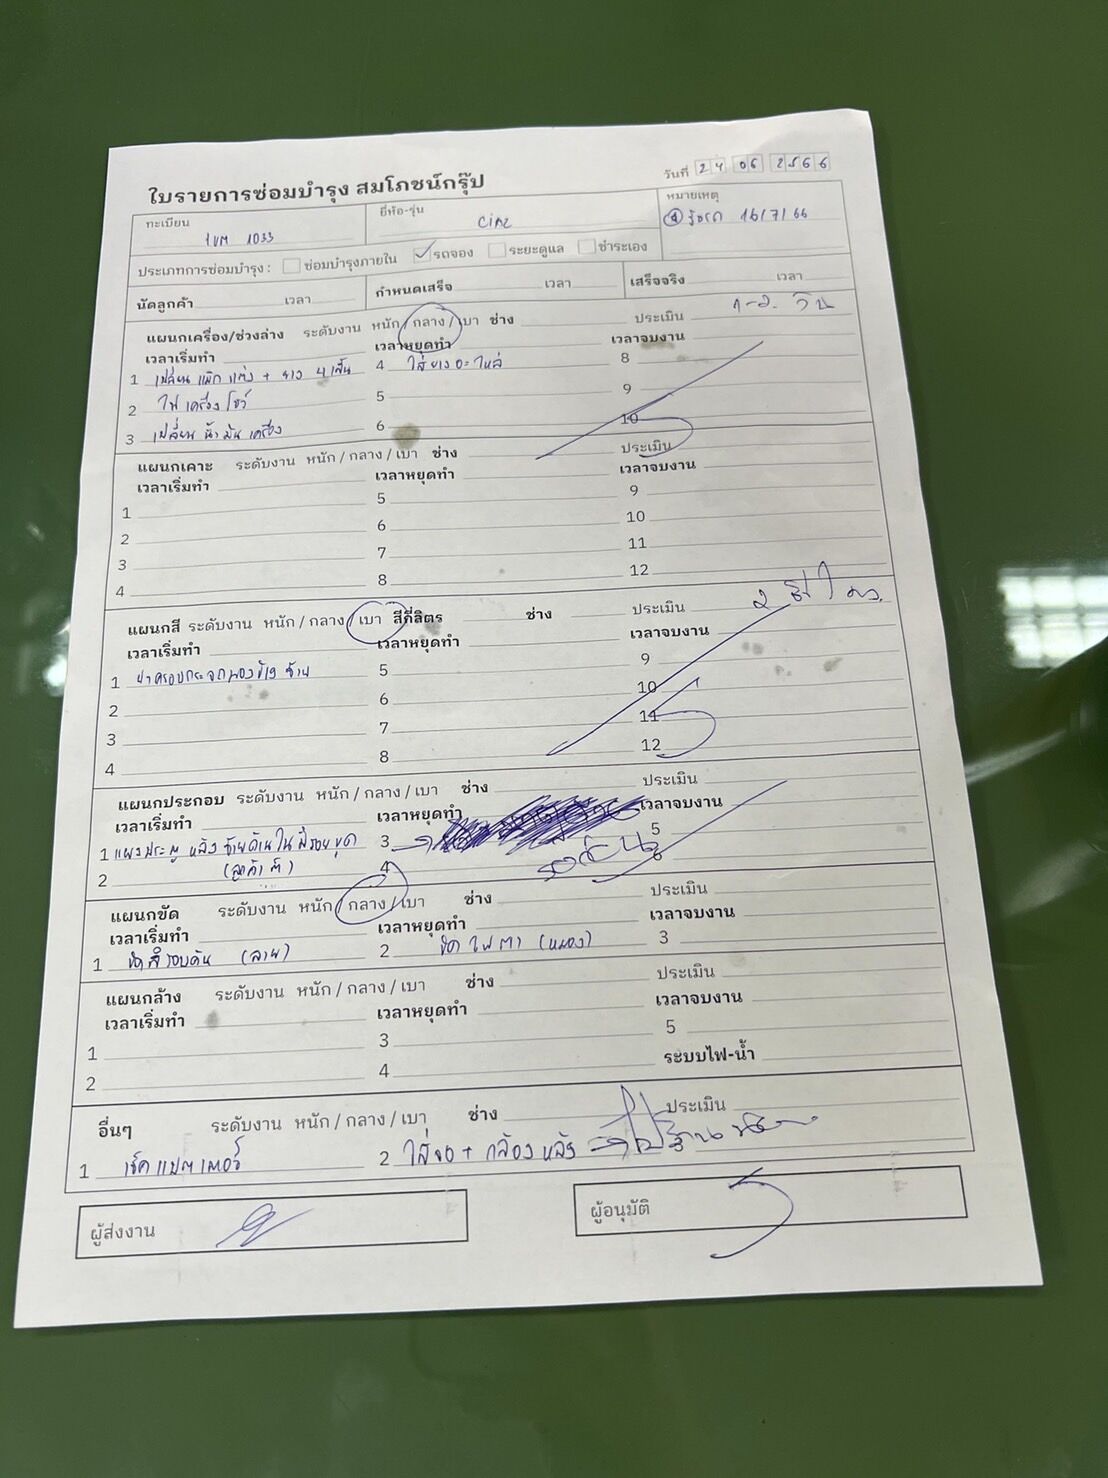 ใบรายการซ่อมบำรุง สมโภชน์กรุ๊ป
วันที่ 24 06 2566
ทะเบียน 1033
ยี่ห้อ-รุ่น
หมายเหตุ
16/7/66
ประเภทการซ่อมบำรุง : ซ่อมบำรุงภายใน รถจอง ระยะดูแล ชำระเอง
นัดลูกค้า เวลา กำหนดเสร็จ เวลา เสร็จจริง เวลา
แผนกเครื่อง/ช่วงล่าง ระดับงาน หนัก / กลาง / เบา ช่าง ประเมิน 1-2 วัน
เวลาเริ่มทำ เวลาหยุดทำ เวลาจบงาน
1 เปลี่ยน แม็ก แต่ง + ยาง 4 เส้น 4 ใส่ยางอะไหล่ 8
2 ไฟ เครื่อง โชว์ 5 9
3 เปลี่ยน น้ำมัน เครื่อง 6 10
แผนกเคาะ ระดับงาน หนัก / กลาง / เบา ช่าง ประเมิน
เวลาเริ่มทำ เวลาหยุดทำ เวลาจบงาน
1 5 9
2 6 10
3 7 11
4 8 12
แผนกสี ระดับงาน หนัก / กลาง / เบา สีกี่ลิตร ช่าง ประเมิน 2
เวลาเริ่มทำ เวลาหยุดทำ เวลาจบงาน
1 ฝาครอบกระจกมองข้าง ซ้าย 5 9
2 6 10
3 7 11
4 8 12
แผนกประกอบ ระดับงาน หนัก / กลาง / เบา ช่าง ประเมิน
เวลาเริ่มทำ เวลาหยุดทำ เวลาจบงาน
1 แผงประตู หลัง ซ้ายด้านใน มีรอยขูด 3 5
2 4 6
แผนกขัด ระดับงาน หนัก / กลาง / เบา ช่าง ประเมิน
เวลาเริ่มทำ เวลาหยุดทำ เวลาจบงาน
1 ขัดสีรอบคัน (ลาย) 2 ขัด ไฟ ตา (หมอง) 3
แผนกล้าง ระดับงาน หนัก / กลาง / เบา ช่าง ประเมิน
เวลาเริ่มทำ เวลาหยุดทำ เวลาจบงาน
1 3 5
2 4 ระบบไฟ-น้ำ
อื่นๆ ระดับงาน หนัก / กลาง / เบา ช่าง ประเมิน
1 เช็ค แบตเตอรี่ 2 ใส่จอ + กล้อง หลัง 3
ผู้ส่งงาน ผู้อนุมัติ